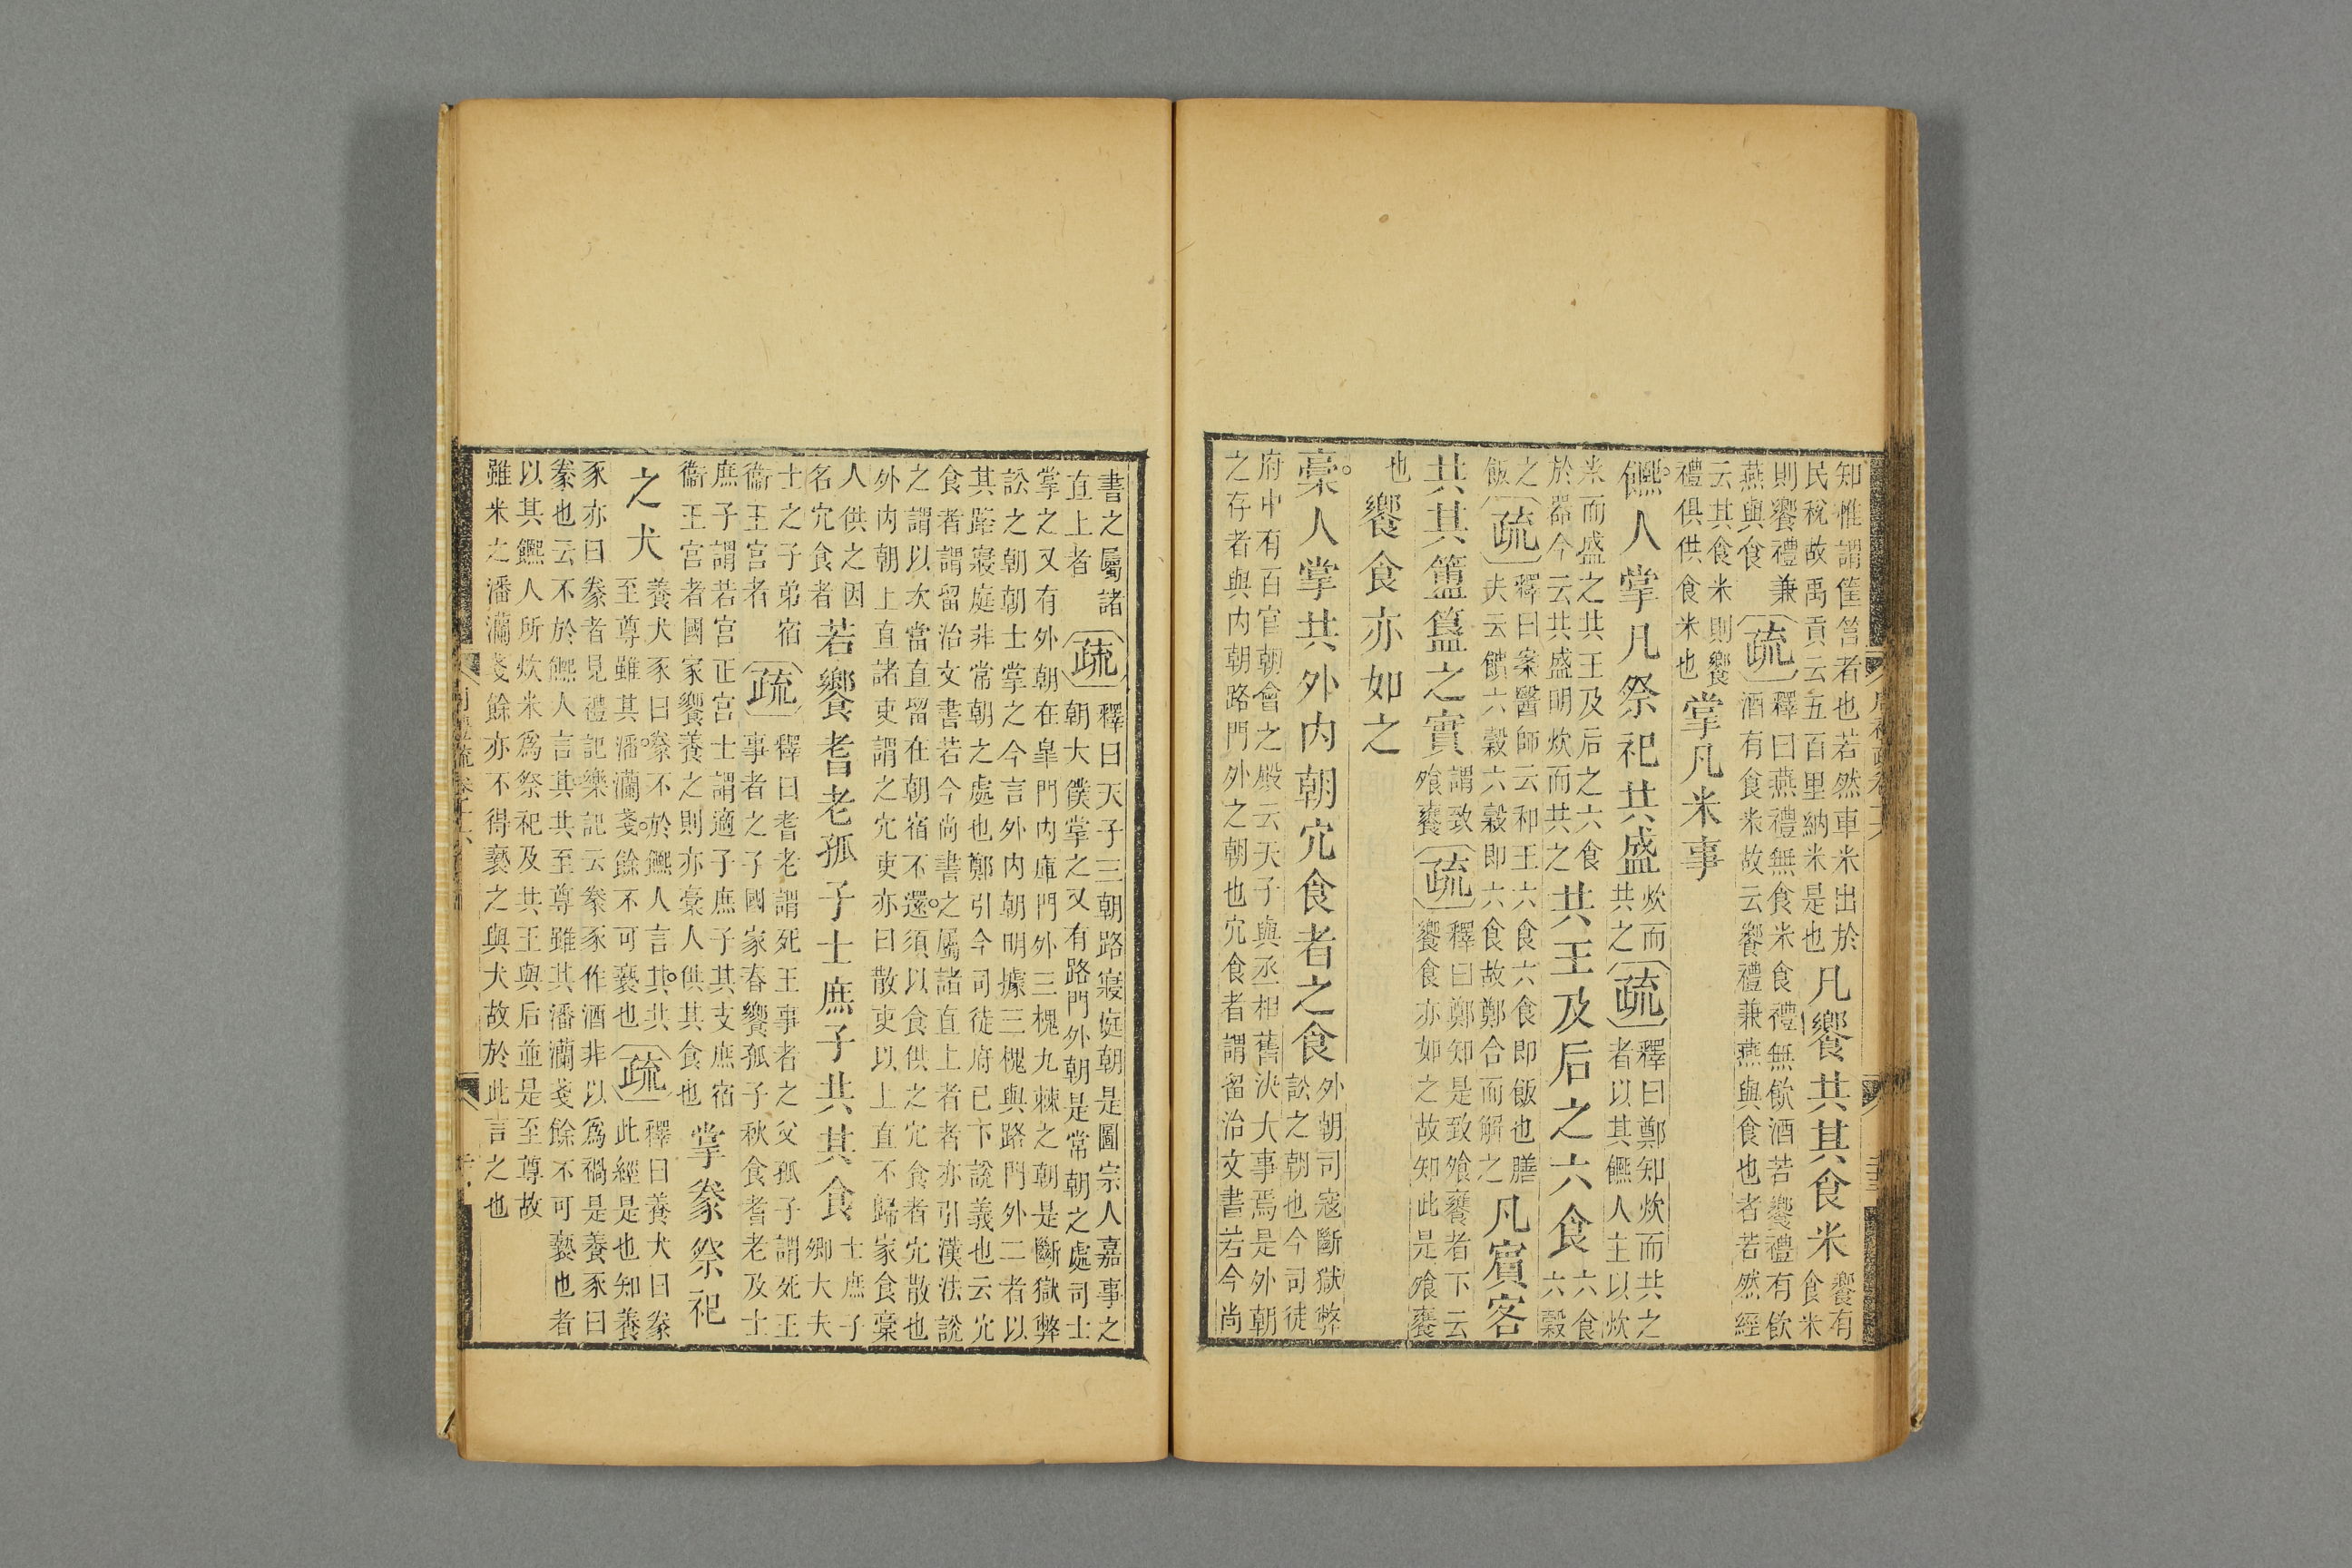 知惟謂筐筥者也若然車米出於
民稅故禹貢云五百里納米是也
凡饗共其食米
饗有
食米
則饗禮兼
燕與食
疏
釋曰燕禮無食米食禮無飲酒若饗禮有飲
酒有食米故云饗禮兼燕與食也者若然經
云其食米則饗
禮俱供食米也
掌凡米事
饎人掌凡祭祀共盛
炊而
共之
疏
釋曰鄭知炊而共之
者以其饎人主以炊
米而盛之共王及后之六食
於器今云共盛明炊而共之
共王及后之六食
六食
六穀
之
飯
疏
釋曰案醫師云和王六食六食即飯也膳
夫云饋六穀六穀即六食故鄭合而解之
凡賓客
共其簠簋之實
謂致
飧饔
疏
釋曰鄭知是致飧饔者下云
饗食亦如之故知此是飧饔
也
饗食亦如之
槀人掌共外內朝宂食者之食
外朝司寇斷獄弊
訟之朝也今司徒
府中有百官朝會之殿云天子與丞相舊決大事焉是外朝
之存者與內朝路門外之朝也宂食者謂留治文書若今尚
書之屬諸
直上者
疏
釋曰天子三朝路寢庭朝是圖宗人嘉事之
朝大僕掌之又有路門外朝是常朝之處司士
掌之又有外朝在皋門內庫門外三槐九棘之朝是斷獄弊
訟之朝朝士掌之今言外內朝明據三槐與路門外二者以
其路寢庭非常朝之處也鄭引今司徒府已下說義也云宂
食者謂留治文書若今尚書之屬諸直上者者亦引漢法說
之謂以次當直留在朝宿不還須以食供之宂食者宂散也
外內朝上直諸吏謂之宂吏亦曰散吏以上直不歸家食槀
人供之因
名宂食者
若饗耆老孤子士庶子共其食
士庶子
卿大夫
士之子弟宿
衞王宮者
疏
釋曰耆老謂死王事者之父孤子謂死王
事者之子國家春饗孤子秋食耆老及士
庶子謂若宮正宮士謂適子庶子其支庶宿
衞王宮者國家饗養之則亦槀人供其食也
掌豢祭祀
之犬
養犬豕曰豢不於饎人言其共
至尊雖其潘灡戔餘不可褻也
疏
釋曰養犬曰豢
此經是也知養
豕亦曰豢者見禮記樂記云豢豕作酒非以爲禍是養豕曰
豢也云不於饎人言其共至尊雖其潘灡戔餘不可褻也者
以其饎人所炊米爲祭祀及共王與后並是至尊故
雖米之潘灡戔餘亦不得褻之與犬故於此言之也